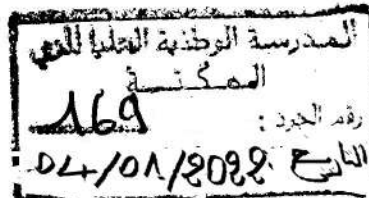 المدرسة الوطنية العليا للغي
المكتبة
رقم الجرد : 169
التاريخ 04/01/2022